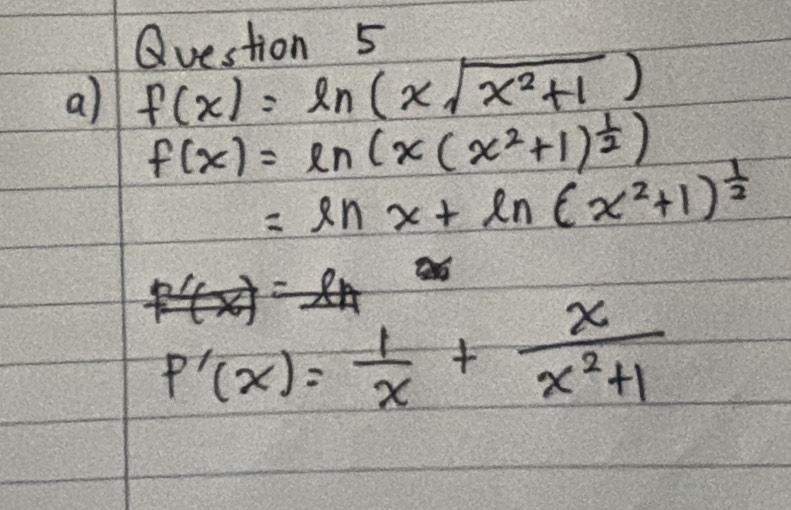 Question 5
a) f(x) = ln(x√(x²+1))
f(x) = ln(x(x²+1)^½)
= ln x + ln(x²+1)^½
f'(x) = ln
f'(x) = 1/x + x/(x²+1)